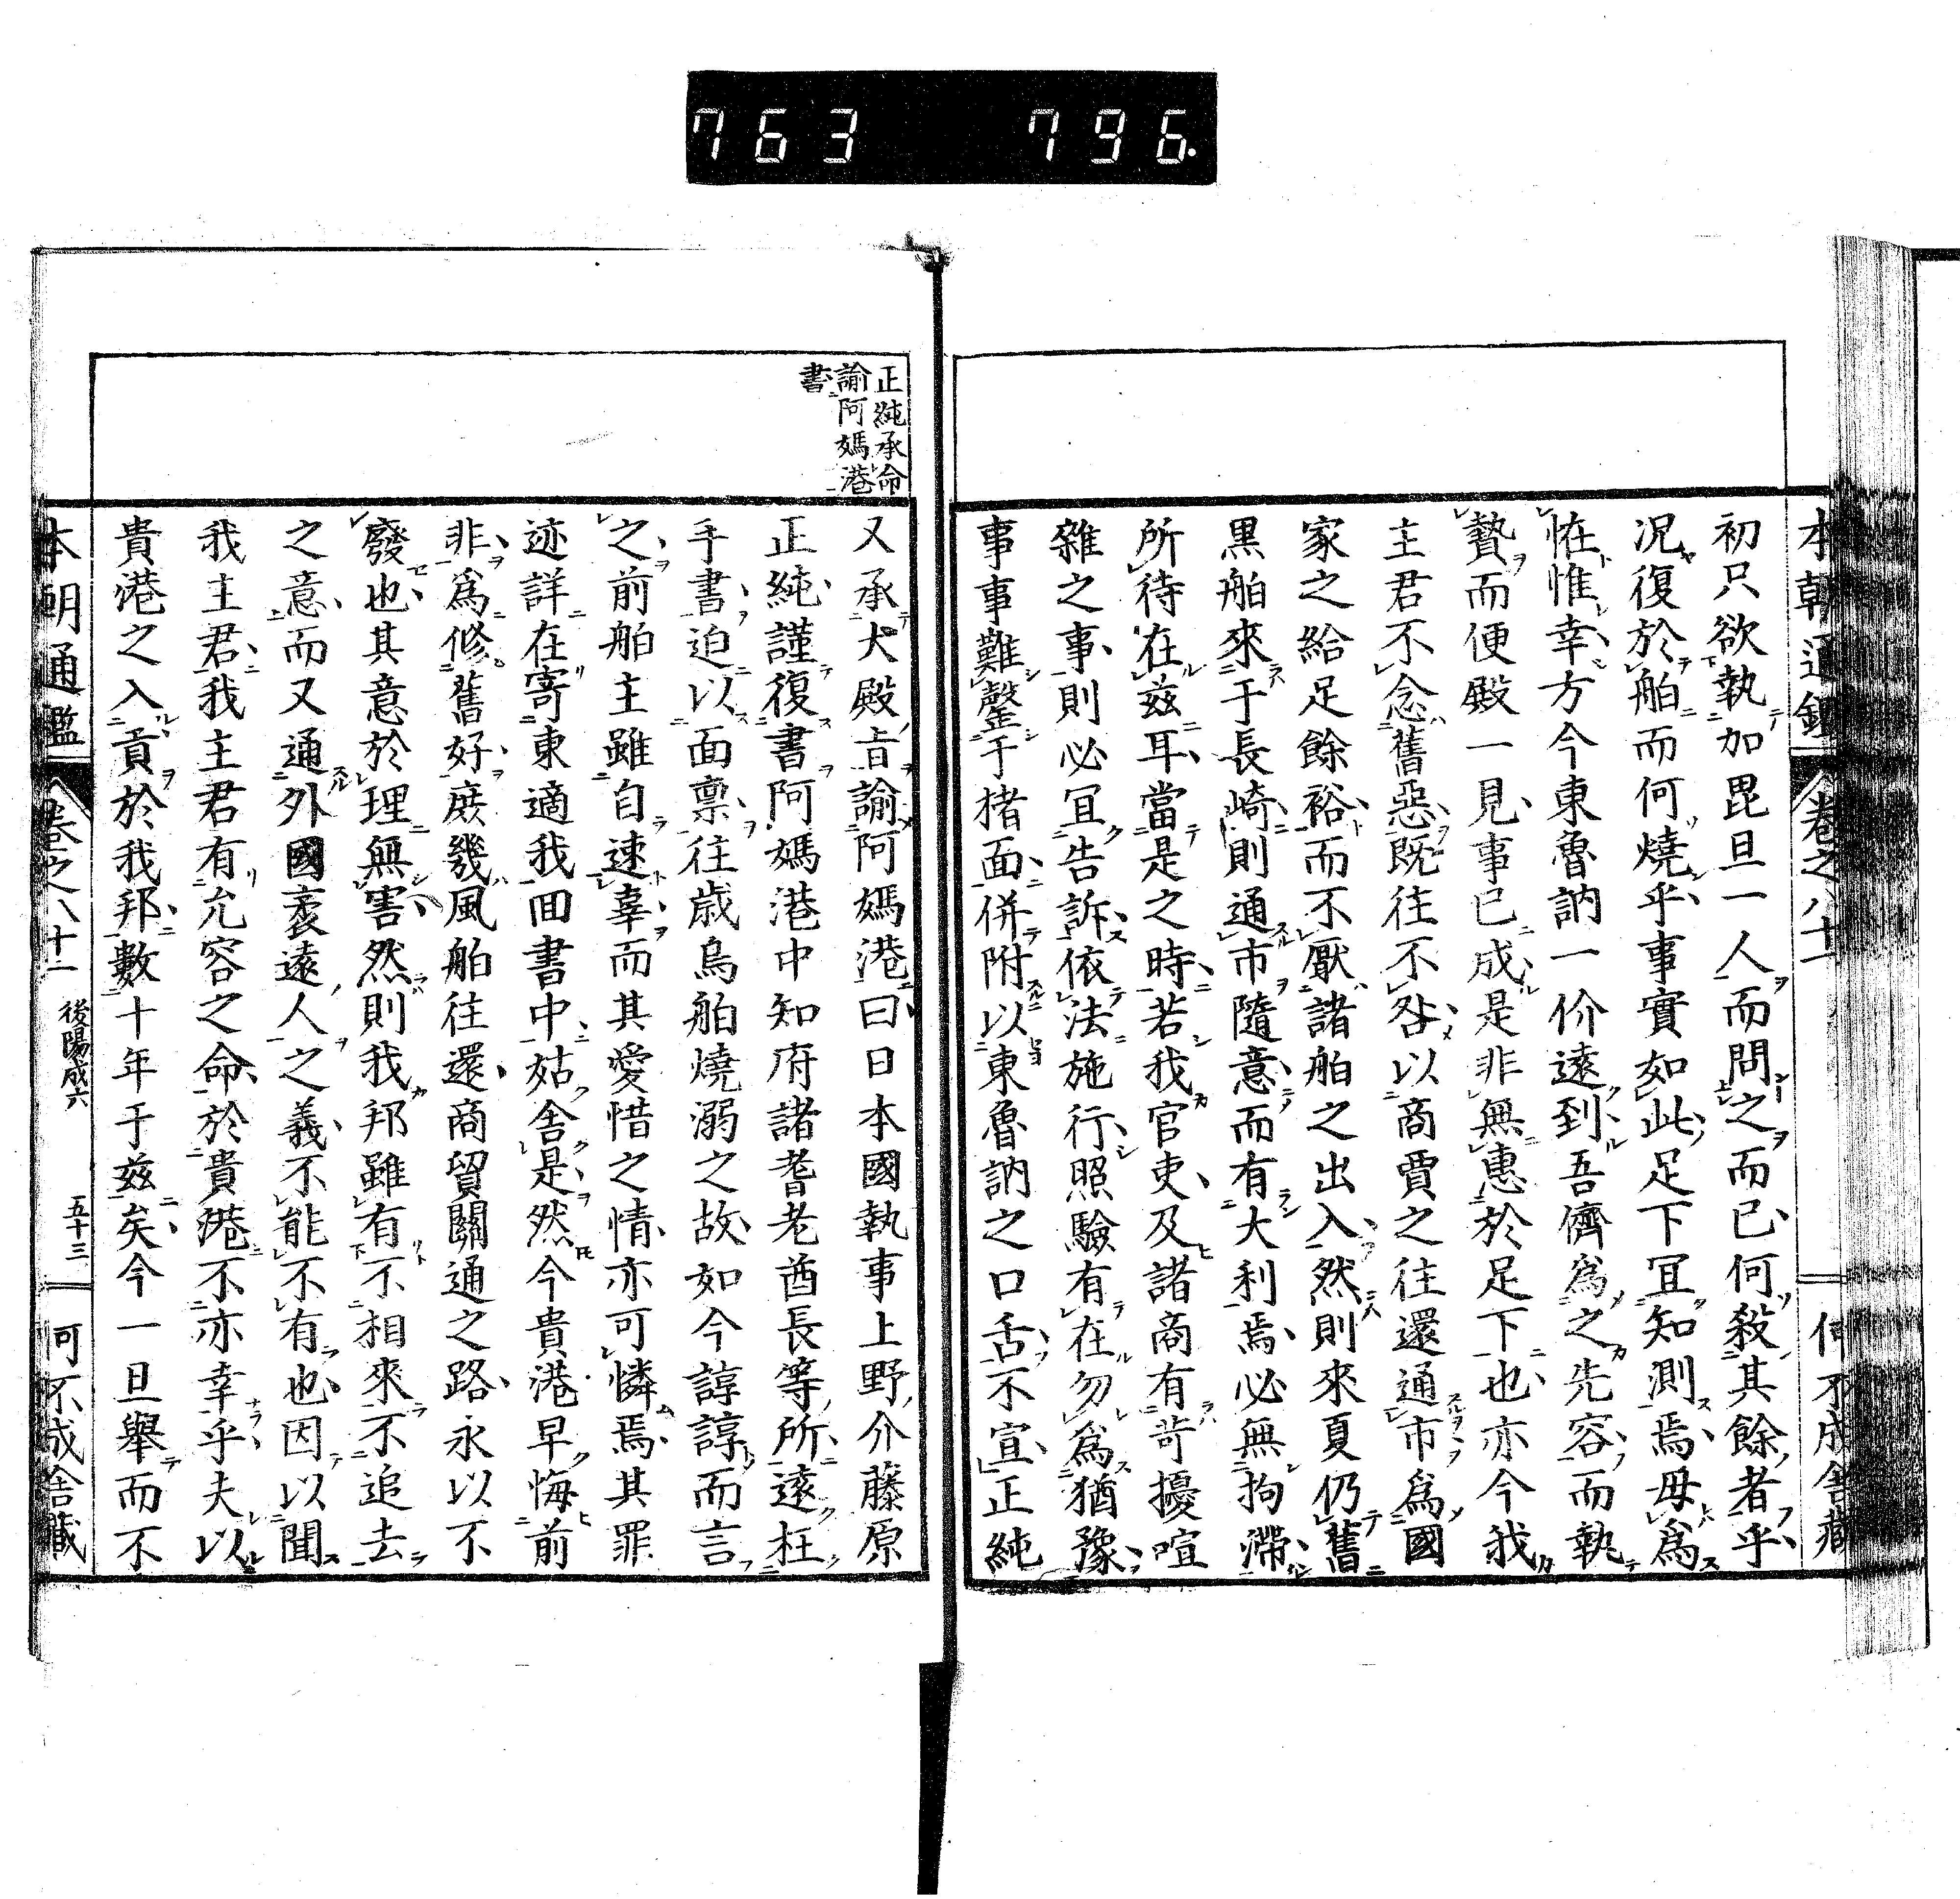 763 796.
本朝通鑑 卷之八十一 何不成舍藏
初只欲執加毘旦一人而問之而已何殺其餘者乎
況復於舶而何燒乎事實如此足下冝知測焉毋爲
恠惟幸方今東魯訥一价遠到吾儕爲之先容而執
贄而便殿一見事已成是非無惠於足下也亦今我
主君不念舊惡既往不咎以商賈之往還通市爲國
家之給足餘裕而不厭諸舶之出入然則來夏仍舊
黒舶來于長崎則通市隨意而有大利焉必無拘滯
所待在兹耳當是之時若我官吏及諸商有苛擾喧
雜之事則必冝告訴依法施行照驗有在勿爲猶豫
事事難罄于楮面併附以東魯訥之口舌不宣正純
正純承命
諭阿媽港
書
又承大殿旨諭阿媽港曰日本國執事上野介藤原
正純謹復書阿媽港中知府諸耆老酋長等所遠枉
手書迫以面稟往歳烏舶燒溺之故如今諄諄而言
之前舶主雖自速辜而其愛惜之情亦可憐焉其罪
迹詳在寄東適我回書中姑舍是然今貴港早悔前
非爲修舊好庶幾風舶往還商貿關通之路永以不
廢也其意於理無害然則我邦雖有不相來不追去
之意而又通外國柔遠人之義不能不有也因以聞
我主君我主君有允容之命於貴港不亦幸乎夫以
貴港之入貢於我邦數十年于兹矣今一旦舉而不
本朝通鑑 卷之八十一 後陽成六 五十三 何不成舍藏